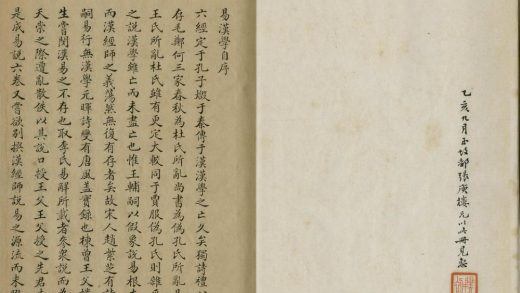 乙亥九月張庚樓兄以此冊見
易漢學自序
六經定于孔子燬于秦傳于漢漢學之亡久矣獨詩禮
存毛鄭何三家春秋為杜氏所亂尚書為偽孔氏所亂
王氏所亂杜氏雖有更定大較同于賈服偽孔氏則雜
之說漢學雖亡而未盡亡也惟王輔嗣以假象說易根
而漢經師之義蕩然無復有存者矣故宋人趙紫芝有
嗣易行無漢學元暉詩變有唐風蓋實錄也棟曾王父
生嘗閔漢易之不存也取李氏易解所載者參衆說而
天崇之際遭亂散佚以其說口授王父王父授之先君
是成易說六卷又嘗欲別撰漢經師說易之源流而未